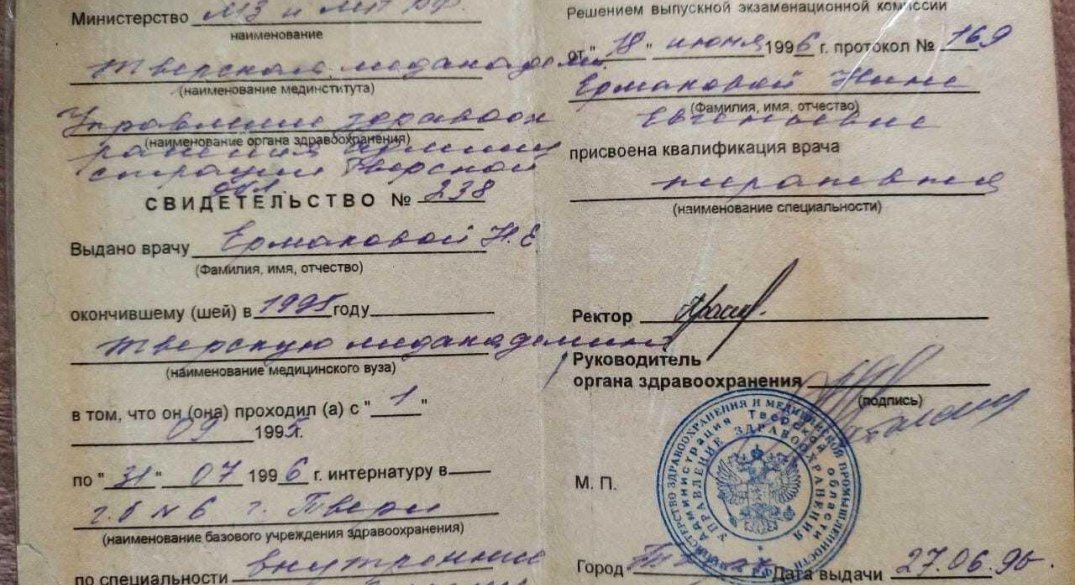 Министерство МЗ и МП РФ.
наименование
Тверская медакадемия
(наименование мединститута)
Управление здравоох
(наименование органа здравоохранения)
ранения админи
страции Тверской
обл.
СВИДЕТЕЛЬСТВО № 238
Выдано врачу Ермаковой Н.Е.
(Фамилия, имя, отчество)
окончившему (шей) в 1995 году
Тверскую медакадемию
(наименование медицинского вуза)
в том, что он (она) проходил (а) с " 1 "
09 1995г.
по " 31 " 07 1996 г. интернатуру в
г.б №6 г. Твери
(наименование базового учреждения здравоохранения)
по специальности внутренние
Решением выпускной экзаменационной комиссии
от " 18 " июня 1996 г. протокол № 169
Ермаковой Нине
(Фамилия, имя, отчество)
Евгеньевне
присвоена квалификация врача
терапевта
(наименование специальности)
Ректор
Руководитель
органа здравоохранения
(подпись)
М. П.
МИНИСТЕРСТВО ЗДРАВООХРАНЕНИЯ И МЕДИЦИНСКОЙ ПРОМЫШЛЕННОСТИ
Администрация Тверской области
УПРАВЛЕНИЕ ЗДРАВООХРАНЕНИЯ
Город Дата выдачи 27.06.96